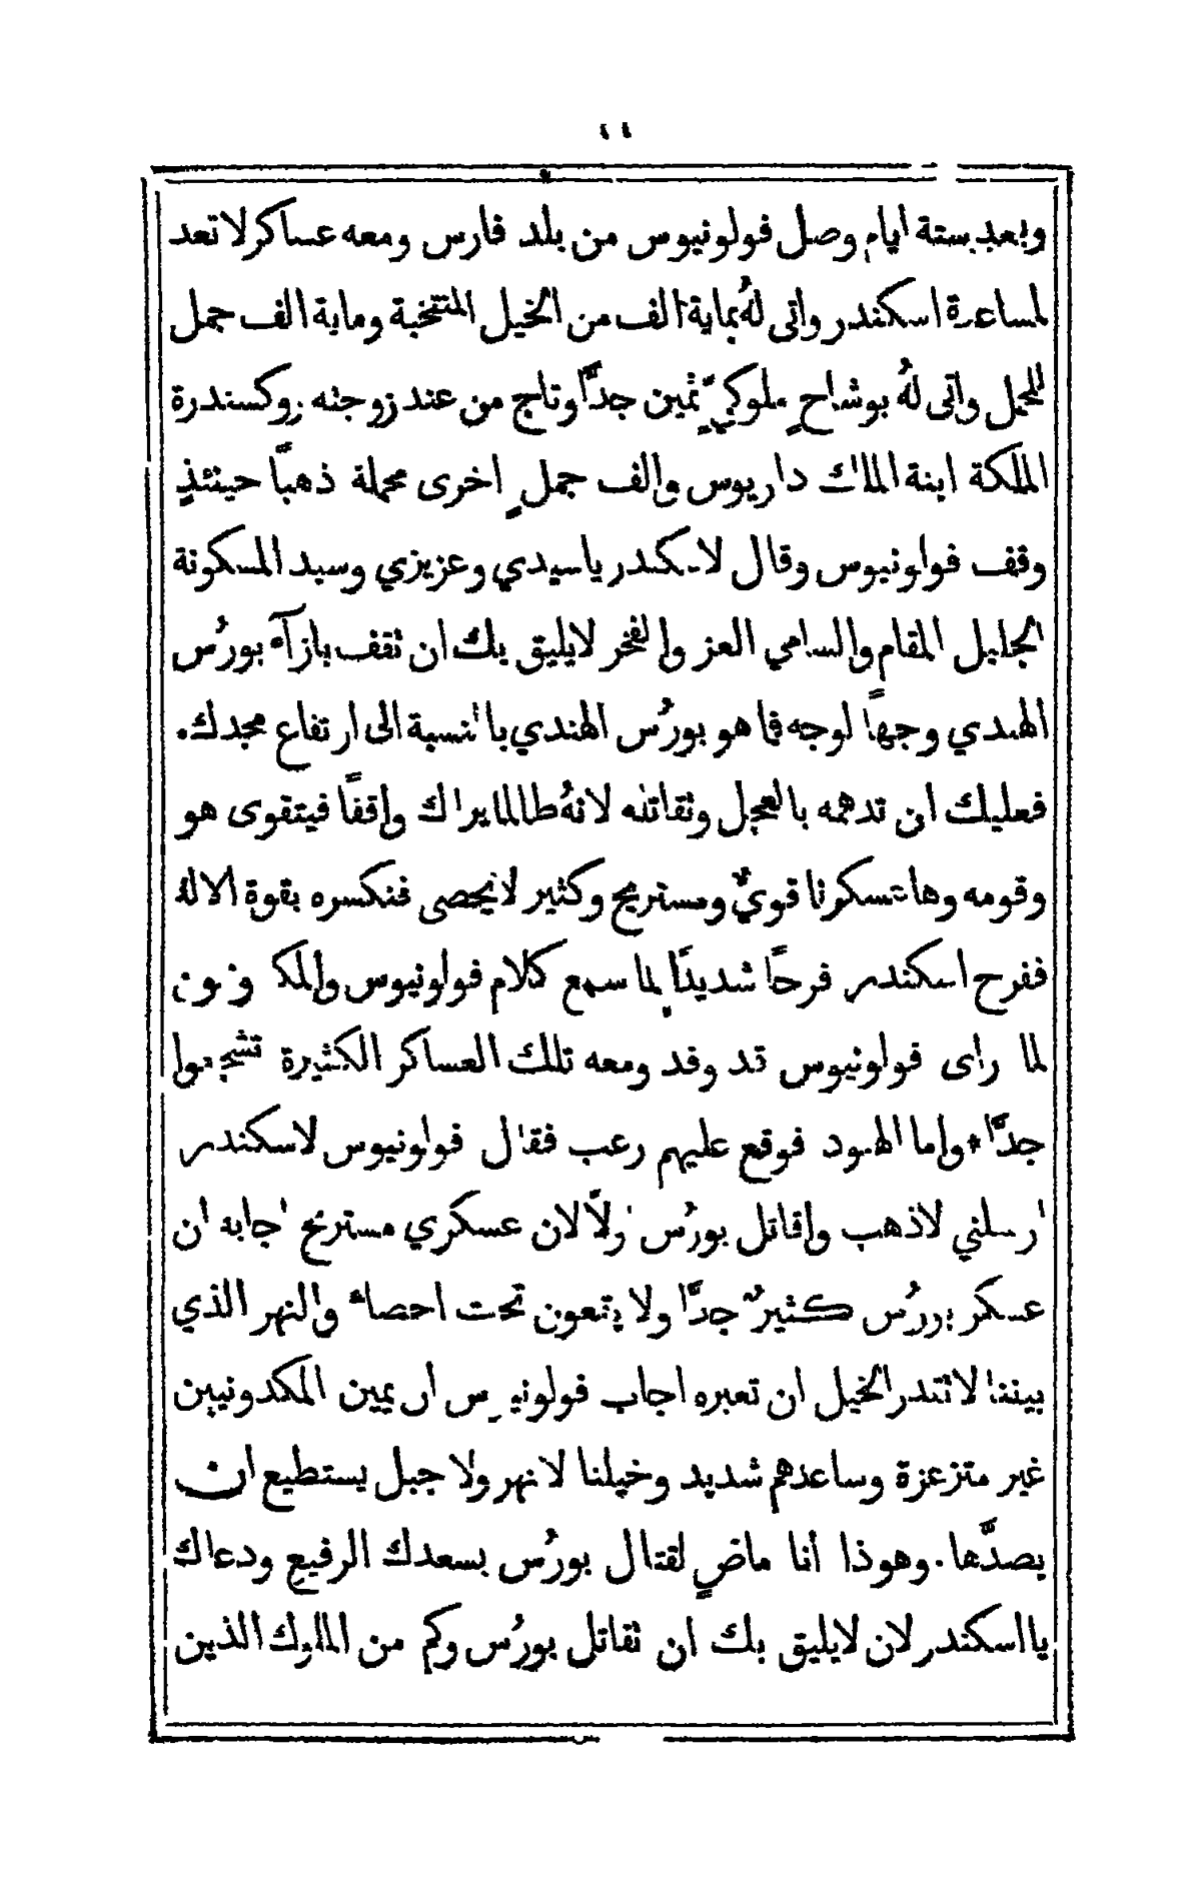 ٤٤
وبعد ستة ايام وصل فولونيوس من بلد فارس ومعه عساكر لا تعد
لمساعدة اسكندر واتى لهُ بماية الف من الخيل المنتخبة وماية الف جمل
للحمل واتى لهُ بوشاحٍ ملوكيٍّ ثمين جدًّا وتاج من عند زوجته روكسندرة
الملكة ابنة الملك داريوس والف جملٍ اخرى محملة ذهبًا حينئذٍ
وقف فولونيوس وقال لاسكندر يا سيدي وعزيزي وسيد المسكونة
الجليل المقام والسامي العز والفخر لا يليق بك ان تقف بازآء بورُس
الهندي وجهًا لوجه فما هو بورُس الهندي بالنسبة الى ارتفاع مجدك.
فعليك ان تدهمه بالعجل وتقاتله لانهُ طالما يراك واقفًا فيتقوى هو
وقومه وها عسكرنا قويٌّ ومستريح وكثير لا يحصى فنكسره بقوة الاله
ففرح اسكندر فرحًا شديدًا لما سمع كلام فولونيوس والمكدونيون
لما راى فولونيوس قد وفد ومعه تلك العساكر الكثيرة تشجعوا
جدًّا * واما الهنود فوقع عليهم رعب فقال فولونيوس لاسكندر
ارسلني لاذهب واقاتل بورُس اولًا لان عسكري مستريح اجابه ان
عسكر بورُس كثيرٌ جدًّا ولا يقعون تحت احصاء والنهر الذي
بيننا لا تقدر الخيل ان تعبره اجاب فولونيوس ان يمين المكدونيين
غير متزعزة وساعدهم شديد وخيلنا لا نهر ولا جبل يستطيع ان
يصدَّها. وهوذا أنا ماضٍ لقتال بورُس بسعدك الرفيع ودعاك
يا اسكندر لان لا يليق بك ان تقاتل بورُس وكم من الملوك الذين